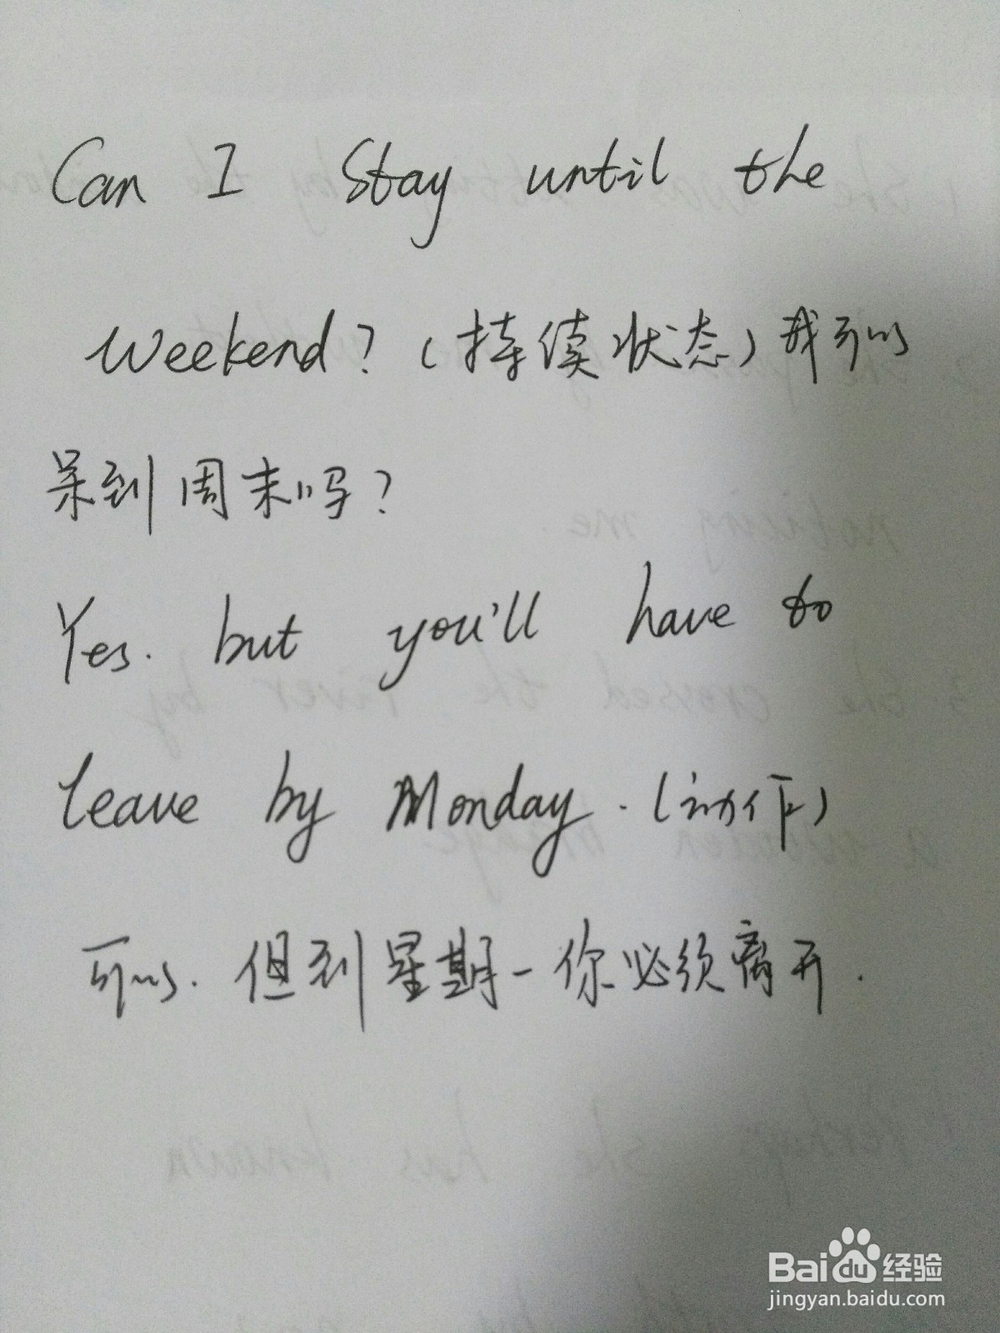 Can I Stay until the
weekend? (持续状态) 我可以
呆到周末吗?
Yes. but you'll have to
leave by Monday. (动作)
可以. 但到星期一你必须离开.
Baidu经验
jingyan.baidu.com